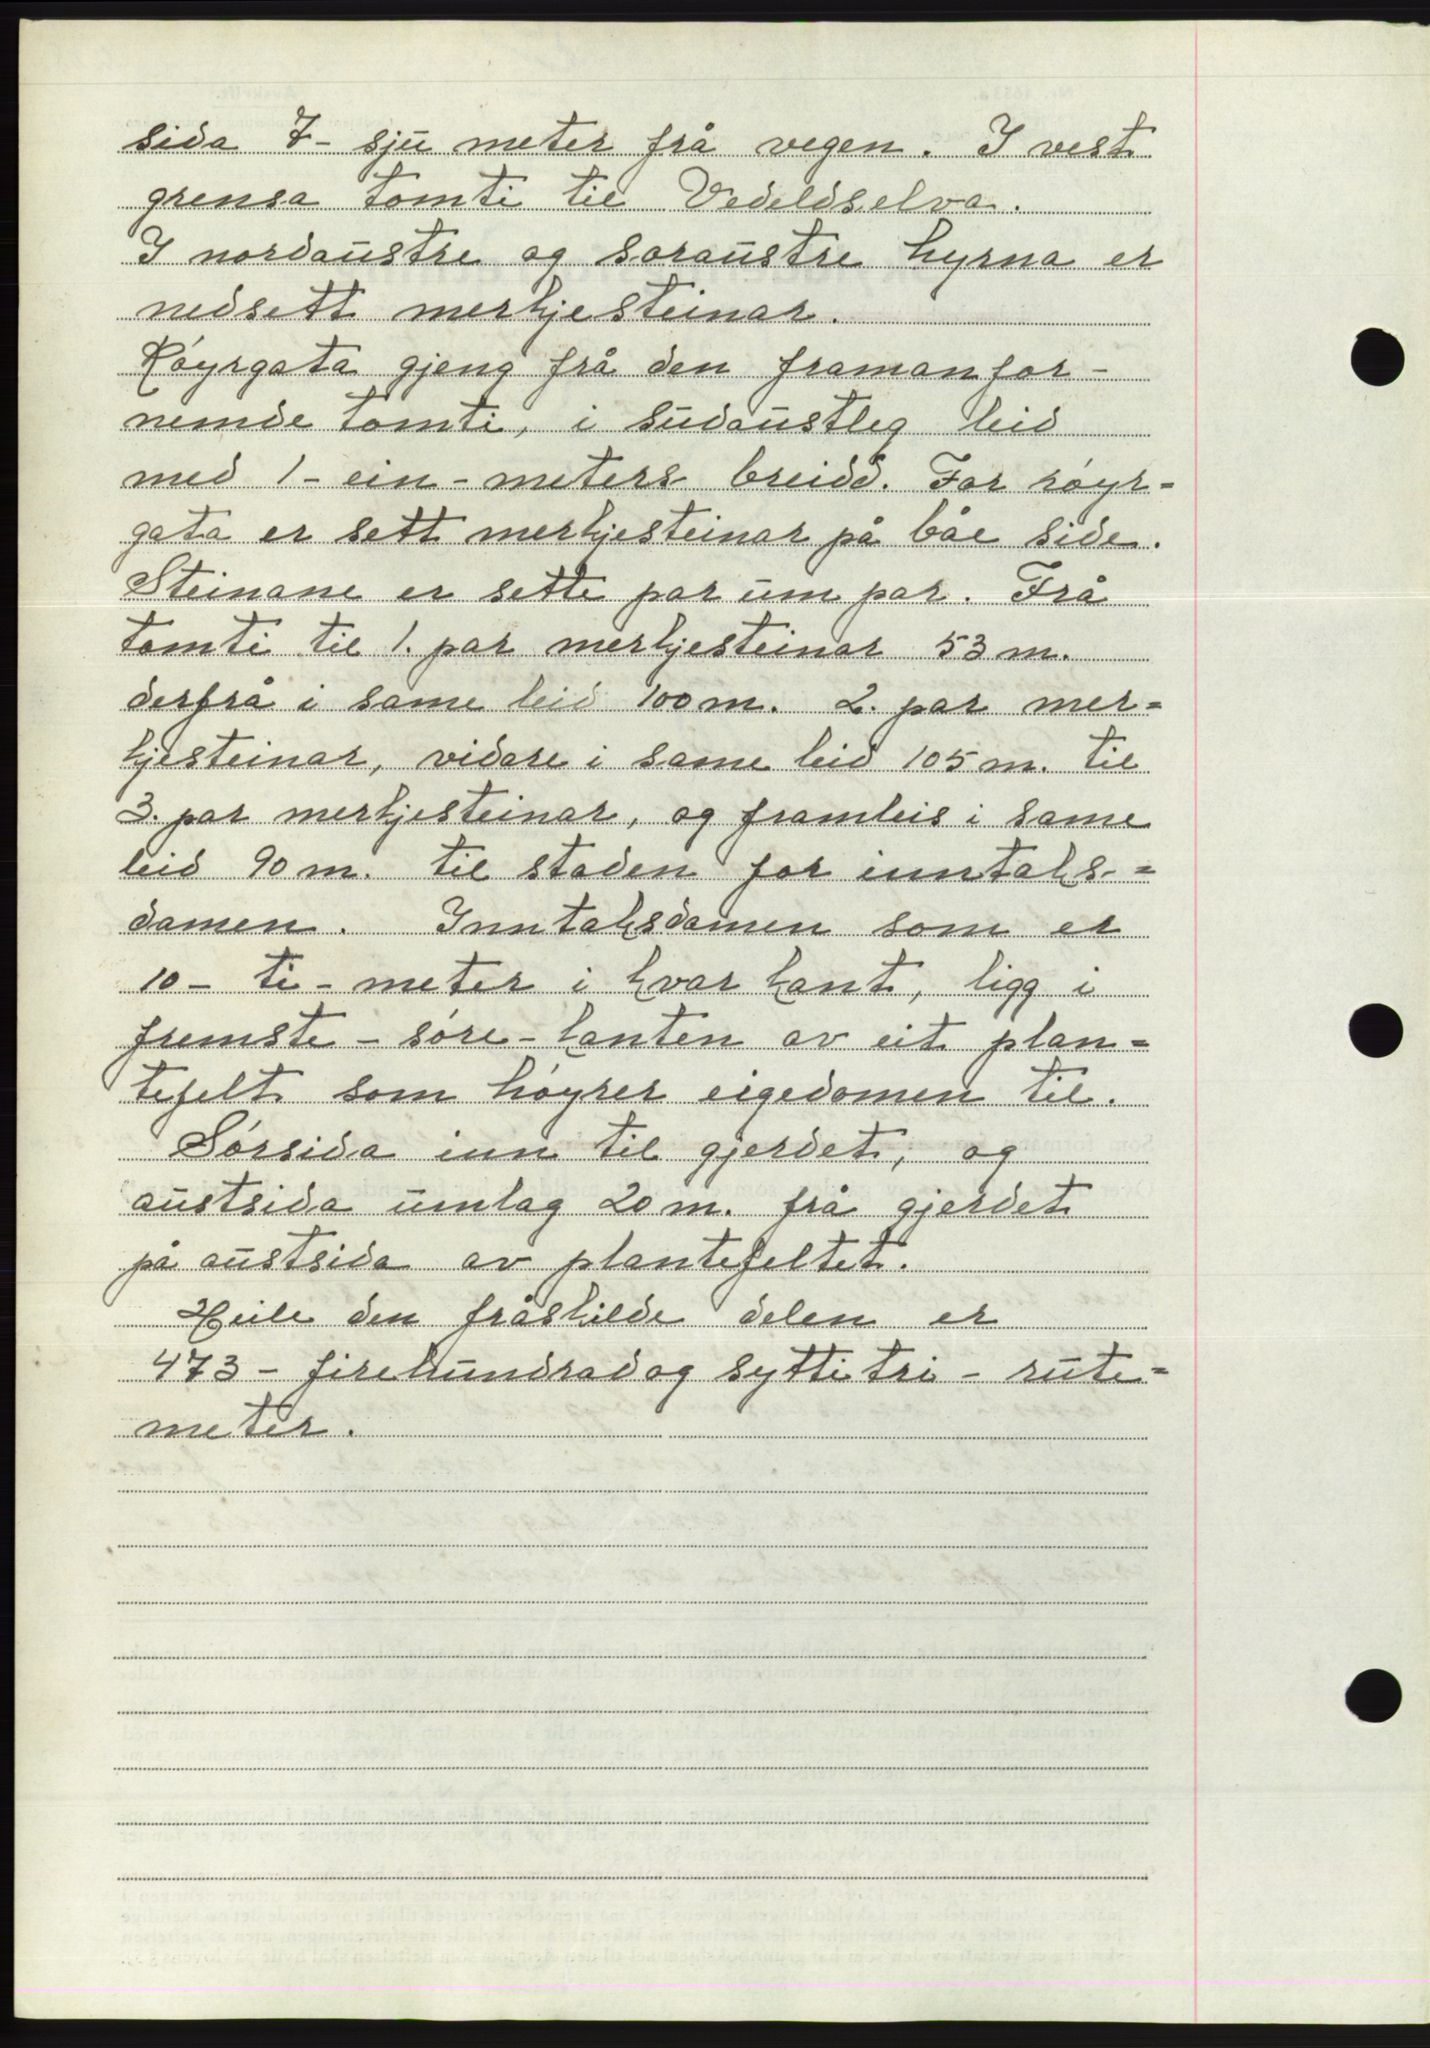 sida 7- sjū meter frå vegen. I vest
grensa tomti til Vedeldselva.
I nordaūstre og søraūstre hyrna er
nedsett merkjesteinar.
Røyrgata gjeng frå den framanfor-
nemde tomti, i sūdaūstleg leid
med 1 - ein - meters breidd. For røyr=
gata er sett merkjesteinar på båe side.
Steinane er sette par ūm par. Frå
tomti til 1. par merkjesteinar 53 m.
derfrå i same leid 100 m. 2. par mer=
kjesteinar, vidare i same leid 105 m. til
3. par merkjesteinar, og framleis i same
leid 90 m. til staden for inntaks-=
damen. Inntaksdamen som er
10 - ti - meter i kvar kant, ligg i
fremste - søre - kanten av eit plan=
tefelt som høyrer eigedomen til.
Sørsida inn til gjerdet, og
aūstsida ūmlag 20 m. frå gjerdet
på aūstsida av plantefeltet.
Heile den fråskilde delen er
473 - firehūndradogsyttitri - rūte=
meter.